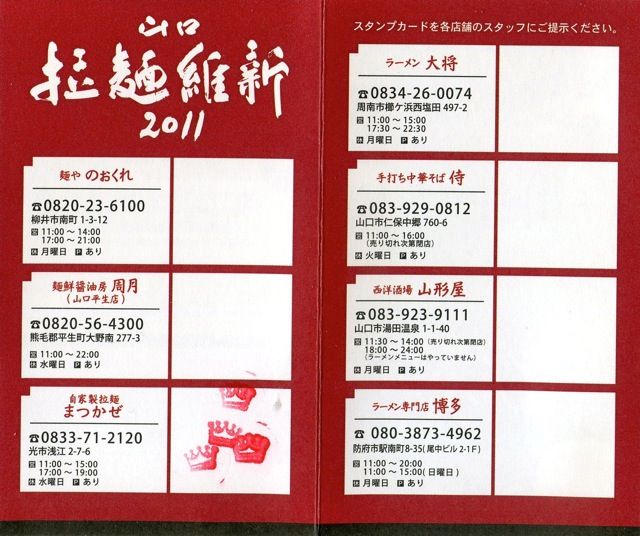 山口
拉麵維新
2011
麺や のおくれ
☎0820-23-6100
柳井市南町 1-3-12
営 11:00 〜 14:00
17:00 〜 21:00
休 月曜日 P あり
麺鮮醤油房 周月
(山口平生店)
☎0820-56-4300
熊毛郡平生町大野南 277-3
営 11:00 〜 22:00
休 水曜日 P あり
自家製拉麺
まつかぜ
☎0833-71-2120
光市浅江 2-7-6
営 11:00 〜 15:00
17:00 〜 19:00
休 水曜日 P あり
スタンプカードを各店舗のスタッフにご提示ください。
ラーメン 大将
☎0834-26-0074
周南市櫛ケ浜西塩田 497-2
営 11:00 〜 15:00
17:30 〜 22:30
休 月曜日 P あり
手打ち中華そば 侍
☎083-929-0812
山口市仁保中郷 760-6
営 11:00 〜 16:00
(売り切れ次第閉店)
休 火曜日 P あり
西洋酒場 山形屋
☎083-923-9111
山口市湯田温泉 1-1-40
営 11:30 〜 14:00 (売り切れ次第閉店)
18:00 〜 24:00
(ラーメンメニューはやっていません)
休 月曜日 P あり
ラーメン専門店 博多
☎ 080-3873-4962
防府市駅南町8-35(尾中ビル 2-1F)
営 11:00 〜 20:00
11:00 〜 15:00 (日曜日)
休 月曜日 P あり